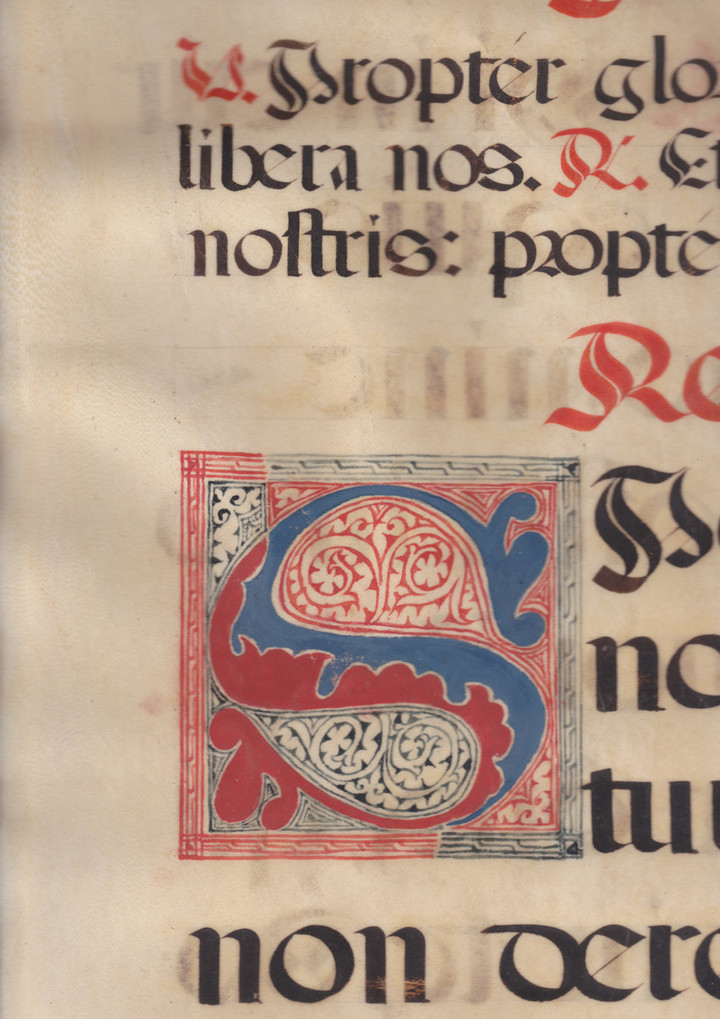 V. Propter glo
libera nos. R. Et
nostris: propte
Re
S
no
tu
non dere